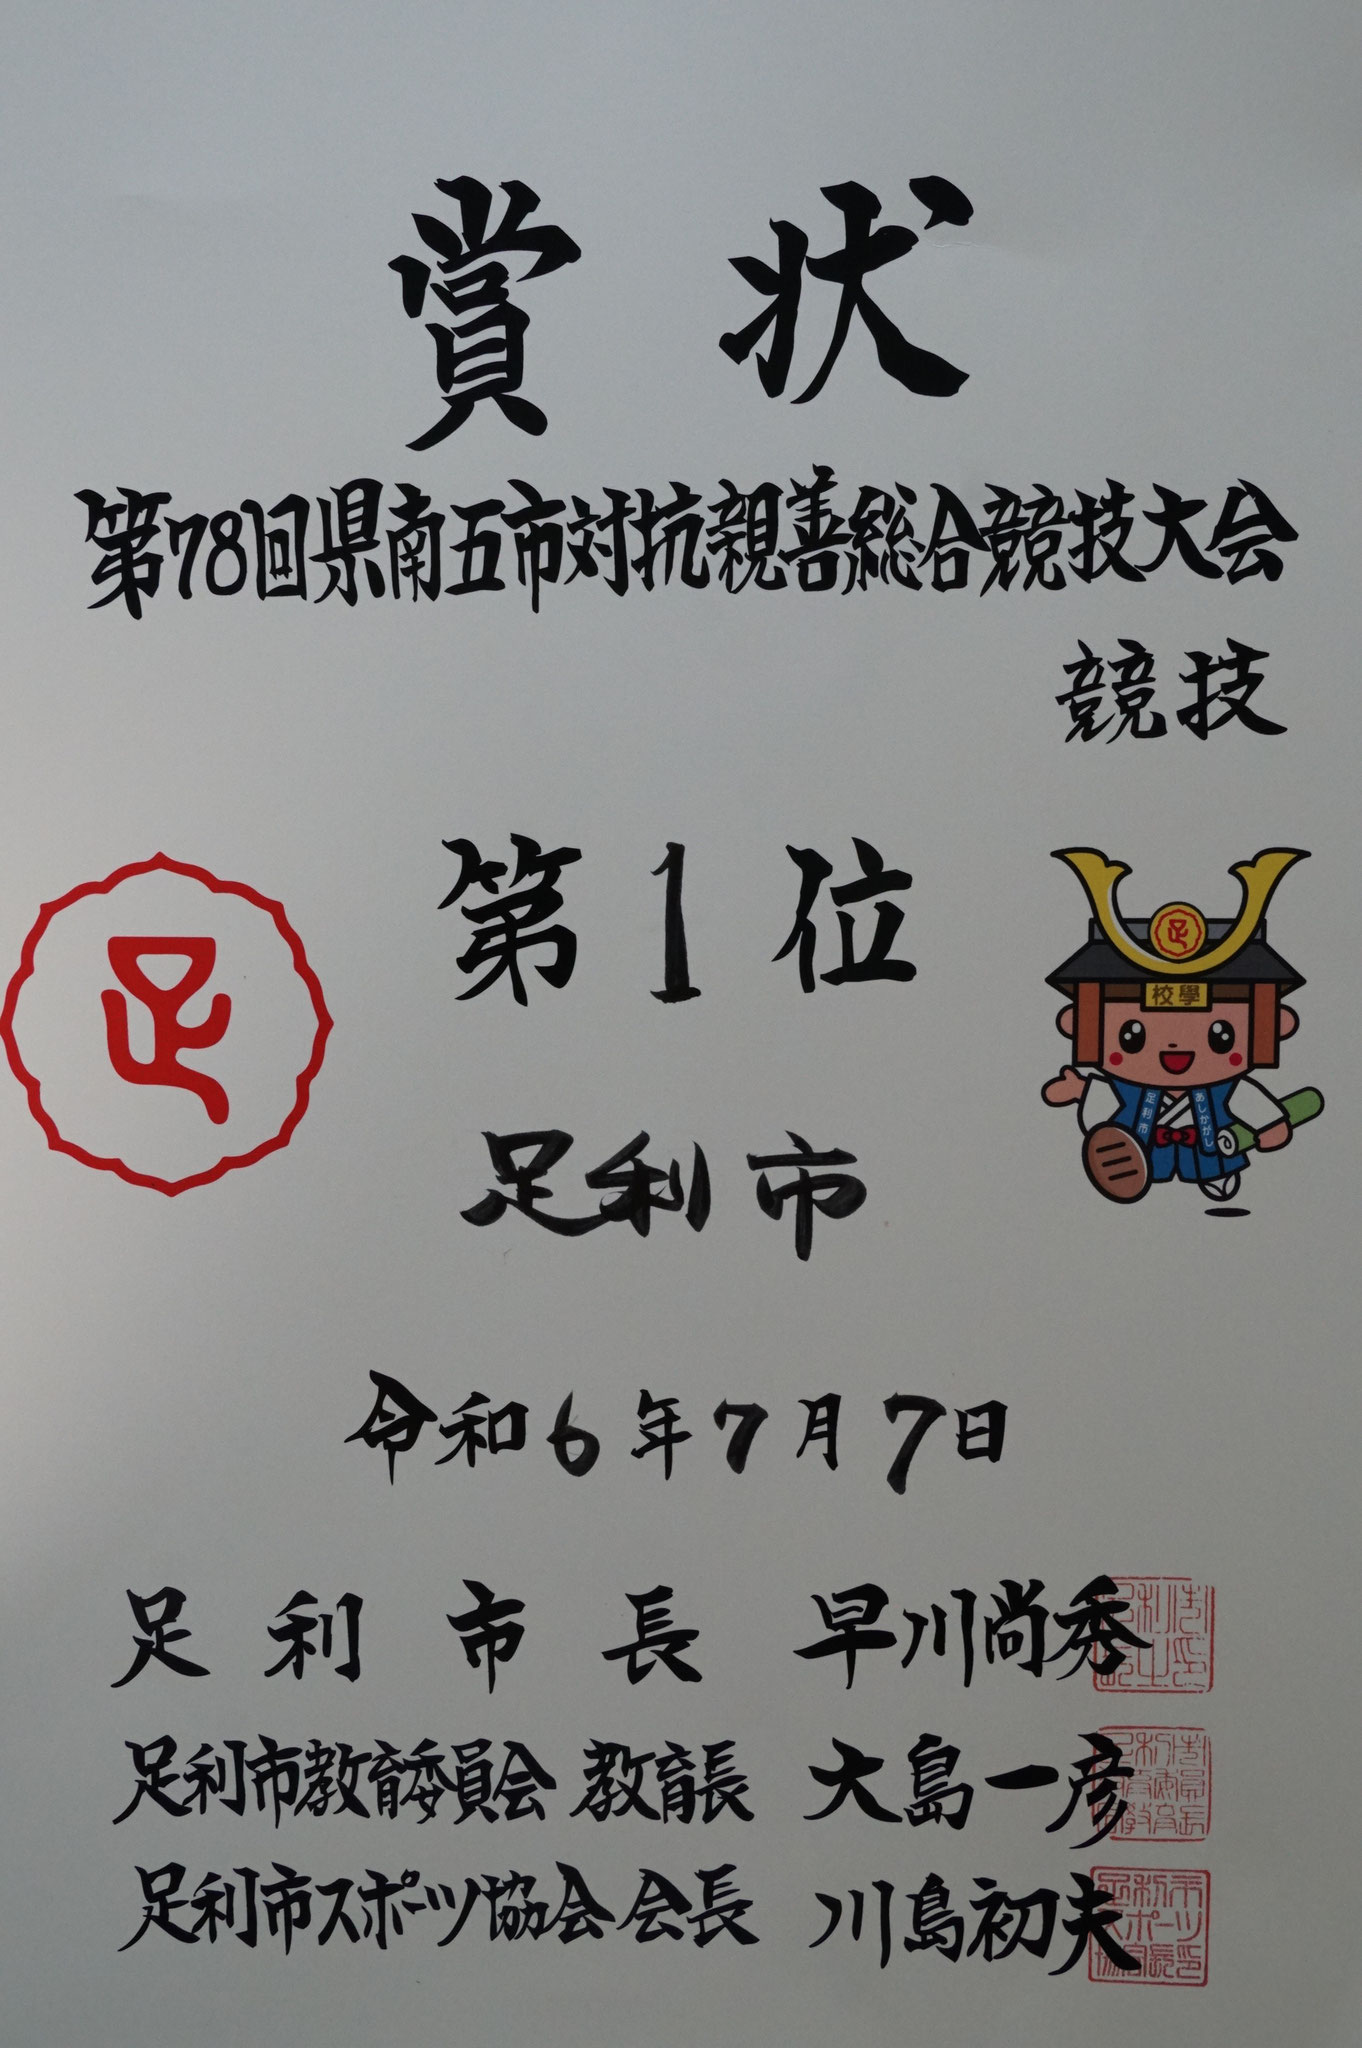 賞状
第78回県南五市対抗親善総合競技大会
競技
第1位
足
學校
足利市
あしかがし
足利市
令和6年7月7日
足利市長 早川尚秀
足利市教育委員会 教育長 大島一彦
足利市スポーツ協会 会長 川島初夫